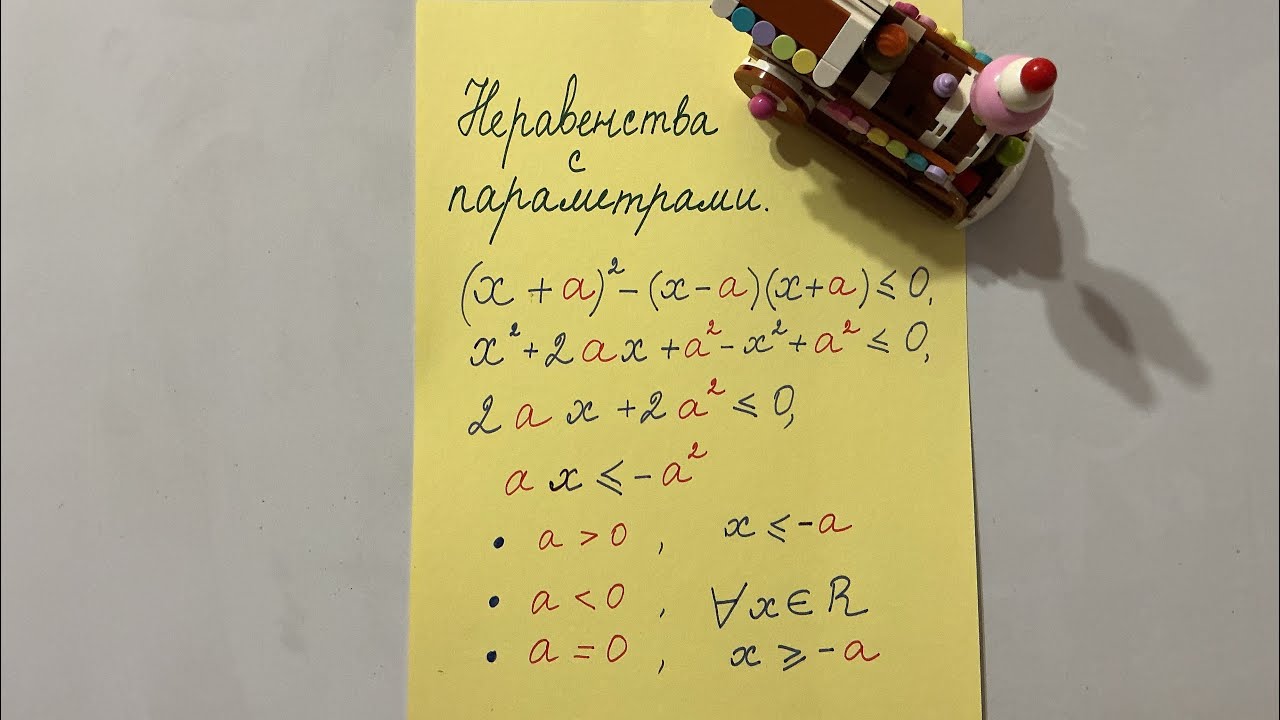 Неравенства
с
параметрами.
(x + a)² - (x - a)(x + a) ≤ 0,
x² + 2ax + a² - x² + a² ≤ 0,
2ax + 2a² ≤ 0,
ax ≤ -a²
• a > 0, x ≤ -a
• a < 0, ∀x∈R
• a = 0, x ≥ -a